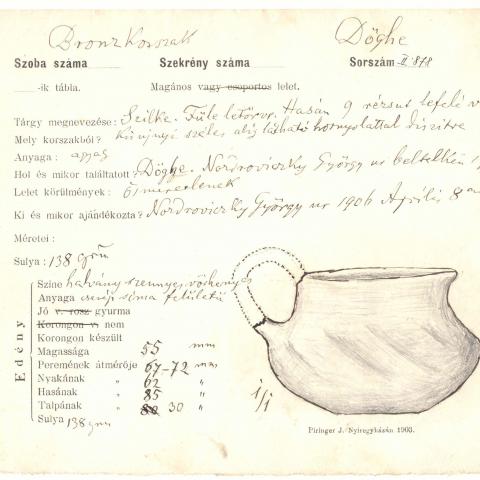 Bronzkorszak Döghe
Szoba száma Szekrény száma Sorszám II 878
-ik tábla. Magános vagy csoportos lelet.
Tárgy megnevezése: Szilke. Füle letörve. Hasán 9 rézsus lefelé
Mely korszakból? széles alig látható hornyolattal diszitve
Anyaga : agyag
Hol és mikor találtatott? Döghe. Nordroviczky György ur beltelkén
Lelet körülmények :
Ki és mikor ajándékozta? Nordroviczky György ur 1906 Április 8
Méretei :
Sulya : 138 grm
Edény
Szine halvány szennyes vöröhenyes
Anyaga cserép sima felületü
Jó v. rosz gyurma
Korongon v. nem
Korongon készült
Magassága 55 mm
Peremének átmérője 67–72 mm
Nyakának „ 62 „
Hasának „ 85 „
Talpának „ 80 30 „
Sulya 138 grm
1/1
Piringer J. Nyiregyházán 1903.